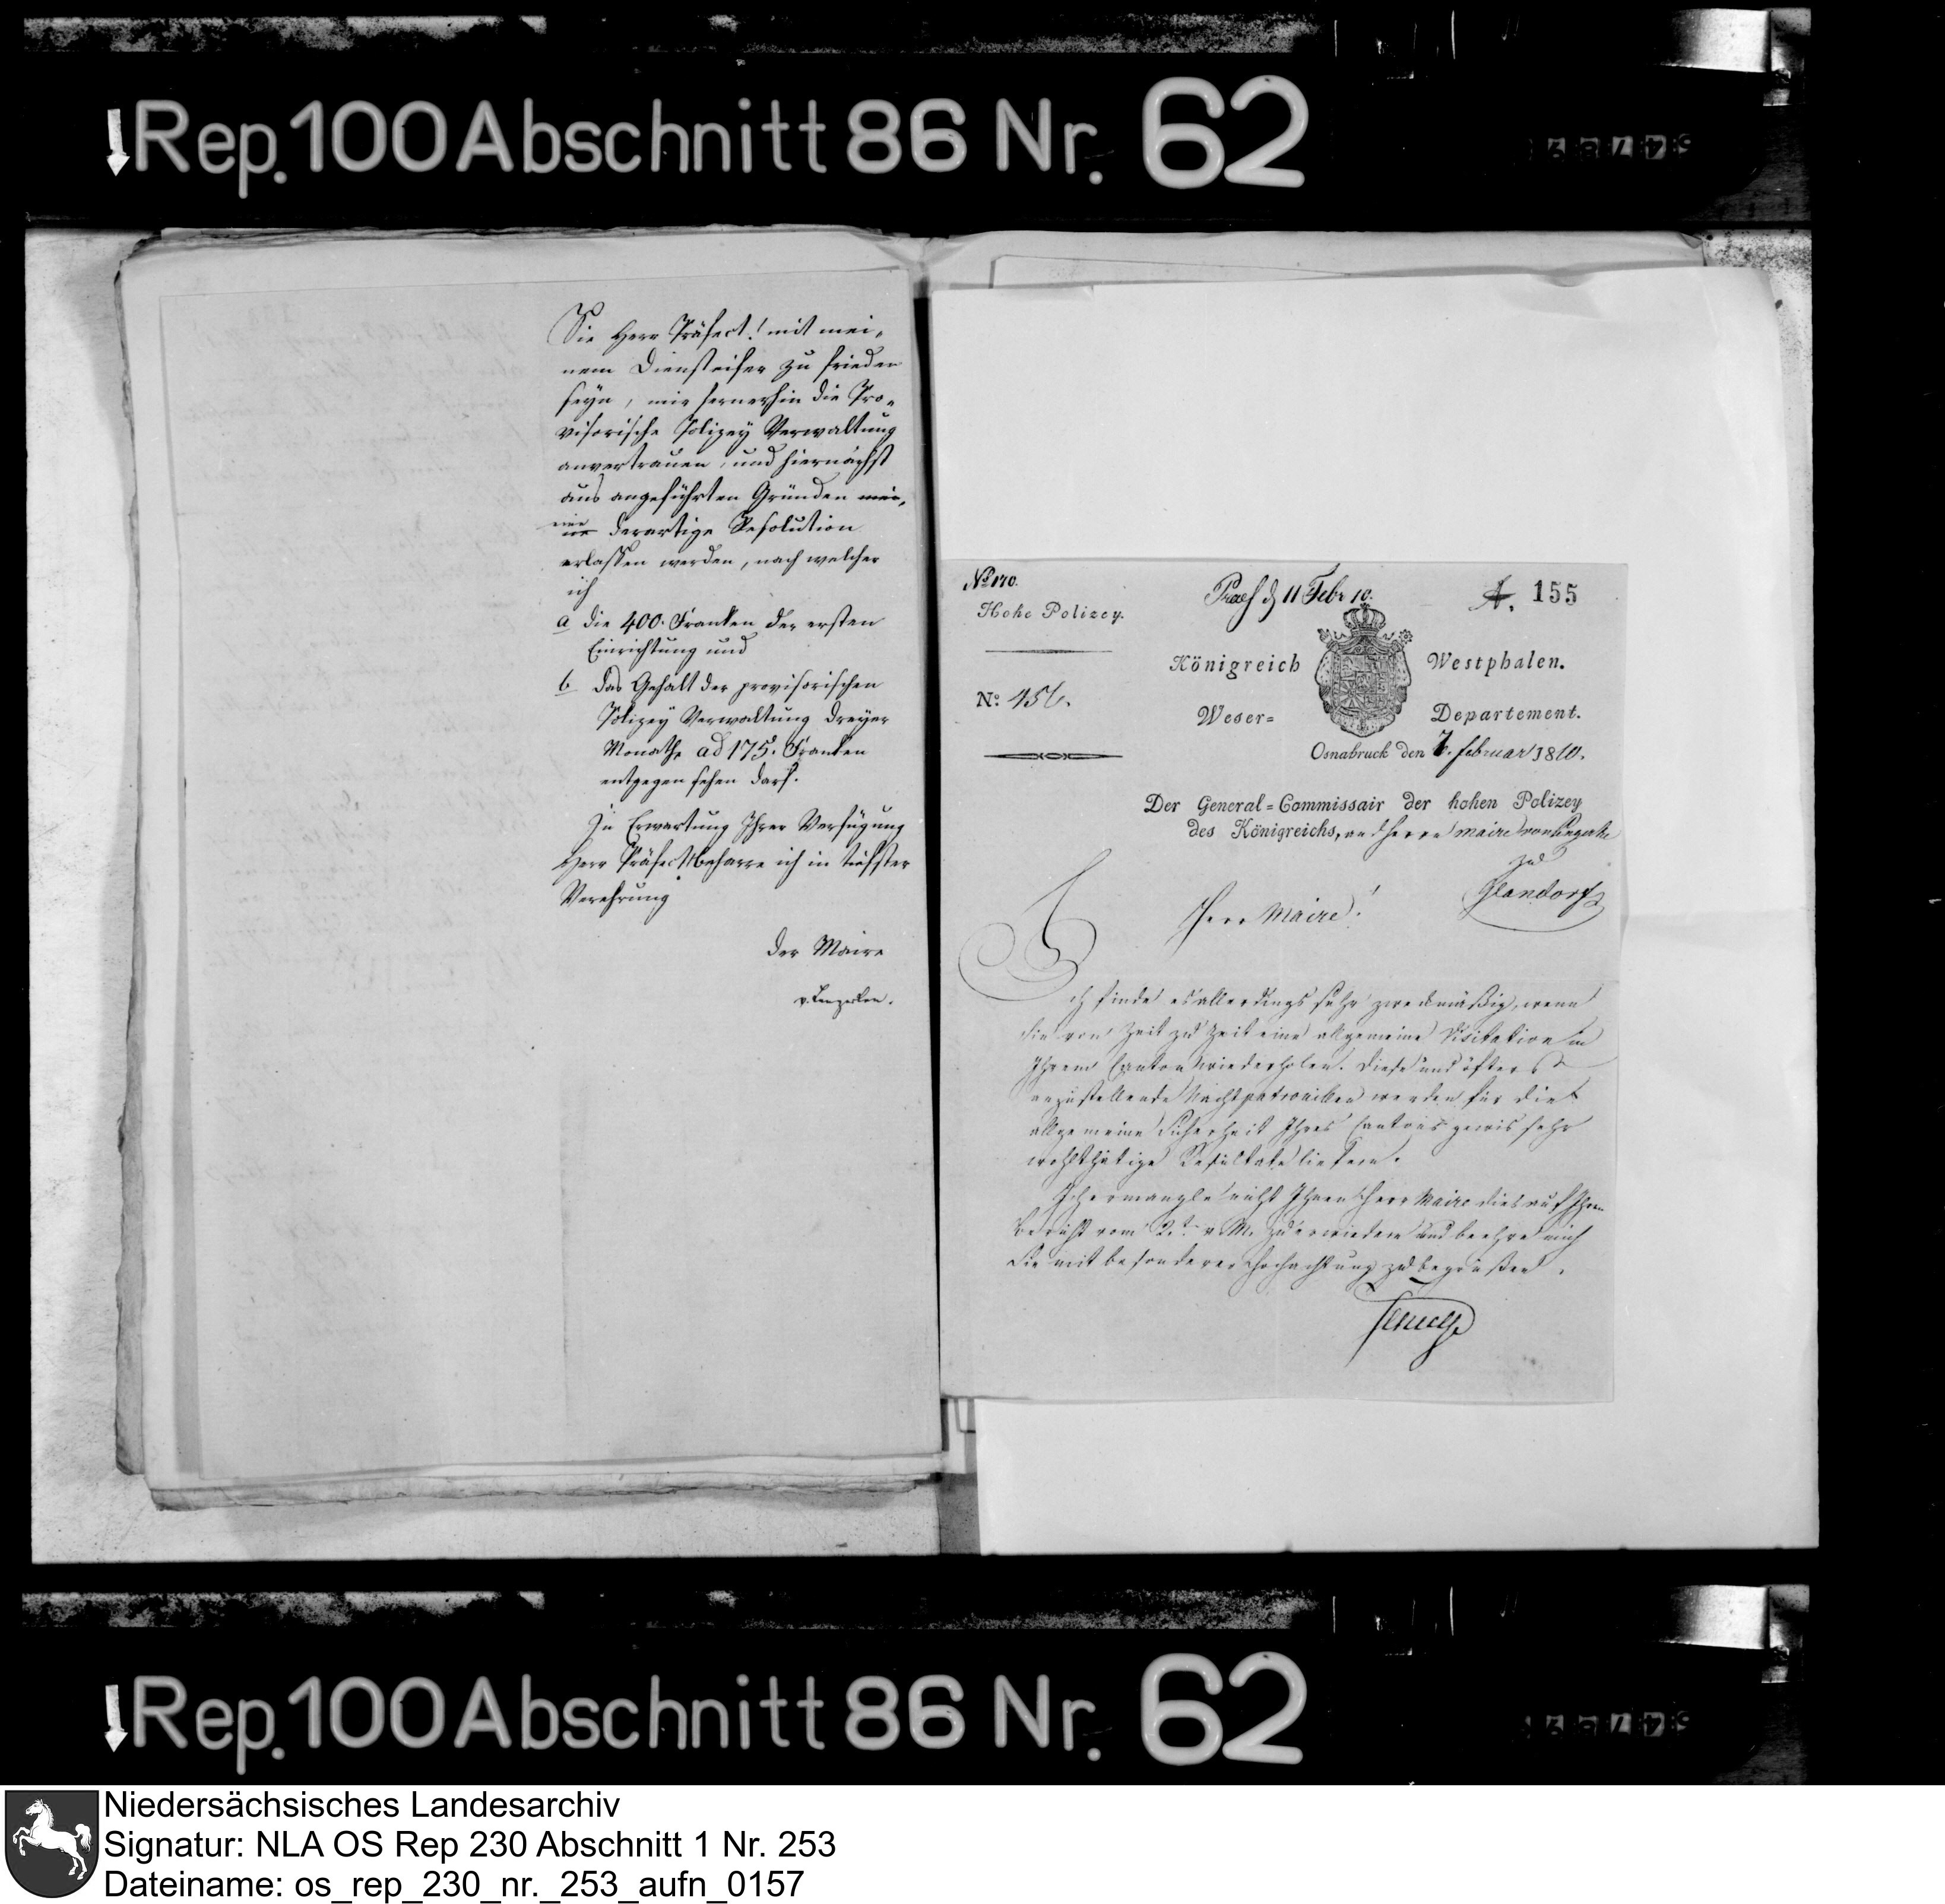 Rep. 100 Abschnitt 86 Nr. 62
Sie Herr Präfect! mit mei-
nem Diensteifer zu frieden
seyn, mir fernerhin die Pro-
visorische Polizey Verwaltung
anvertrauen, und hiernächst
aus angeführten Gründen mei-
eine
ne derartige Resolution
erlassen werden, nach welcher
ich
a die 400. Franken der ersten
Einrichtung und
b das Gehalt der provisorischen
Polizey Verwaltung dreyer
Monathe ad 175. Franken
entgegen sehen darf.
In Erwartung Ihrer Verfügung
Herr Präfect! beharre ich in tiefster
Verehrung
der Maire
v. Lengerken.
No 170.
Praes d 11 Febr 10.
155
Hohe Polizey.
Königreich Westphalen.
No. 456.
Weser= Departement.
Osnabruck den 7. februar 1810.
Der General=Commissair der hohen Polizey
des Königreichs, an Herrn Maire von Lingerke
zu
Glandorf
Herr Maire!
Ich finde es allerdings sehr zweckmäßig, wenn
Sie von Zeit zu Zeit eine allgemeine Visitation in
Ihrem Canton wiederholen. Diese und öfters
anzustellende Nachtpatrouillen werden für die
allgemeine Sicherheit Ihres Cantons gewis sehr
wohlthätige Resultate liefern.
Ich ermangle nicht Ihnen Herr Maire dies auf Ihren
Bericht vom 2.t v. M. zu erwiedern und beehre mich
Sie mit besonderer Hochachtung zu begrüßen.
Rep. 100 Abschnitt 86 Nr. 62
Niedersächsisches Landesarchiv
Signatur: NLA OS Rep 230 Abschnitt 1 Nr. 253
Dateiname: os_rep_230_nr._253_aufn_0157